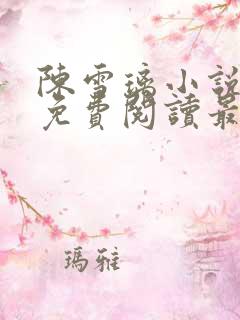 陳雪璃小說
免費閱讀最
瑪雅